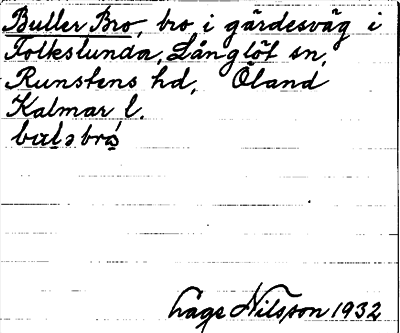 Buller Bro, bro i gärdesväg i
Folkslunda, Långlöt sn,
Runstens hd, Öland
Kalmar l.
Nilsson 1932